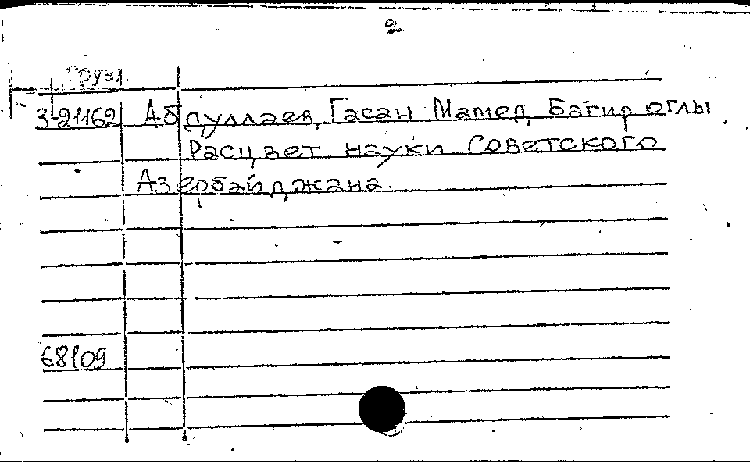 2
Груз.
3-21162 Абдуллаев, Гасан Мамед Багир оглы
Расцвет науки Советского
Азербайджана.
68109